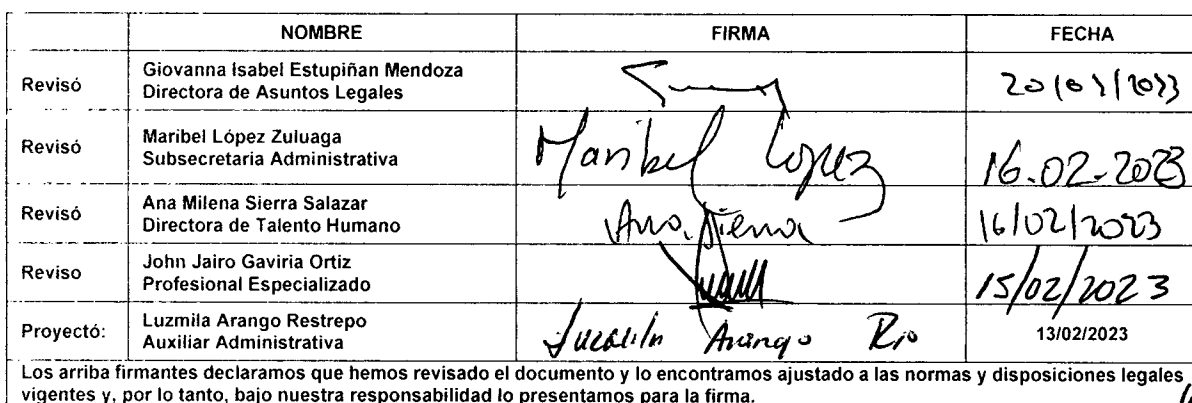 NOMBRE FIRMA FECHA
Revisó
Giovanna Isabel Estupiñan Mendoza
Directora de Asuntos Legales
Revisó
Maribel López Zuluaga
Subsecretaria Administrativa
Maribel López
16.02-2023
Revisó
Ana Milena Sierra Salazar
Directora de Talento Humano
Ana Sierra
16/02/2023
Reviso
John Jairo Gaviria Ortiz
Profesional Especializado
15/02/2023
Proyectó:
Luzmila Arango Restrepo
Auxiliar Administrativa
Arango
13/02/2023
Los arriba firmantes declaramos que hemos revisado el documento y lo encontramos ajustado a las normas y disposiciones legales
vigentes y, por lo tanto, bajo nuestra responsabilidad lo presentamos para la firma.